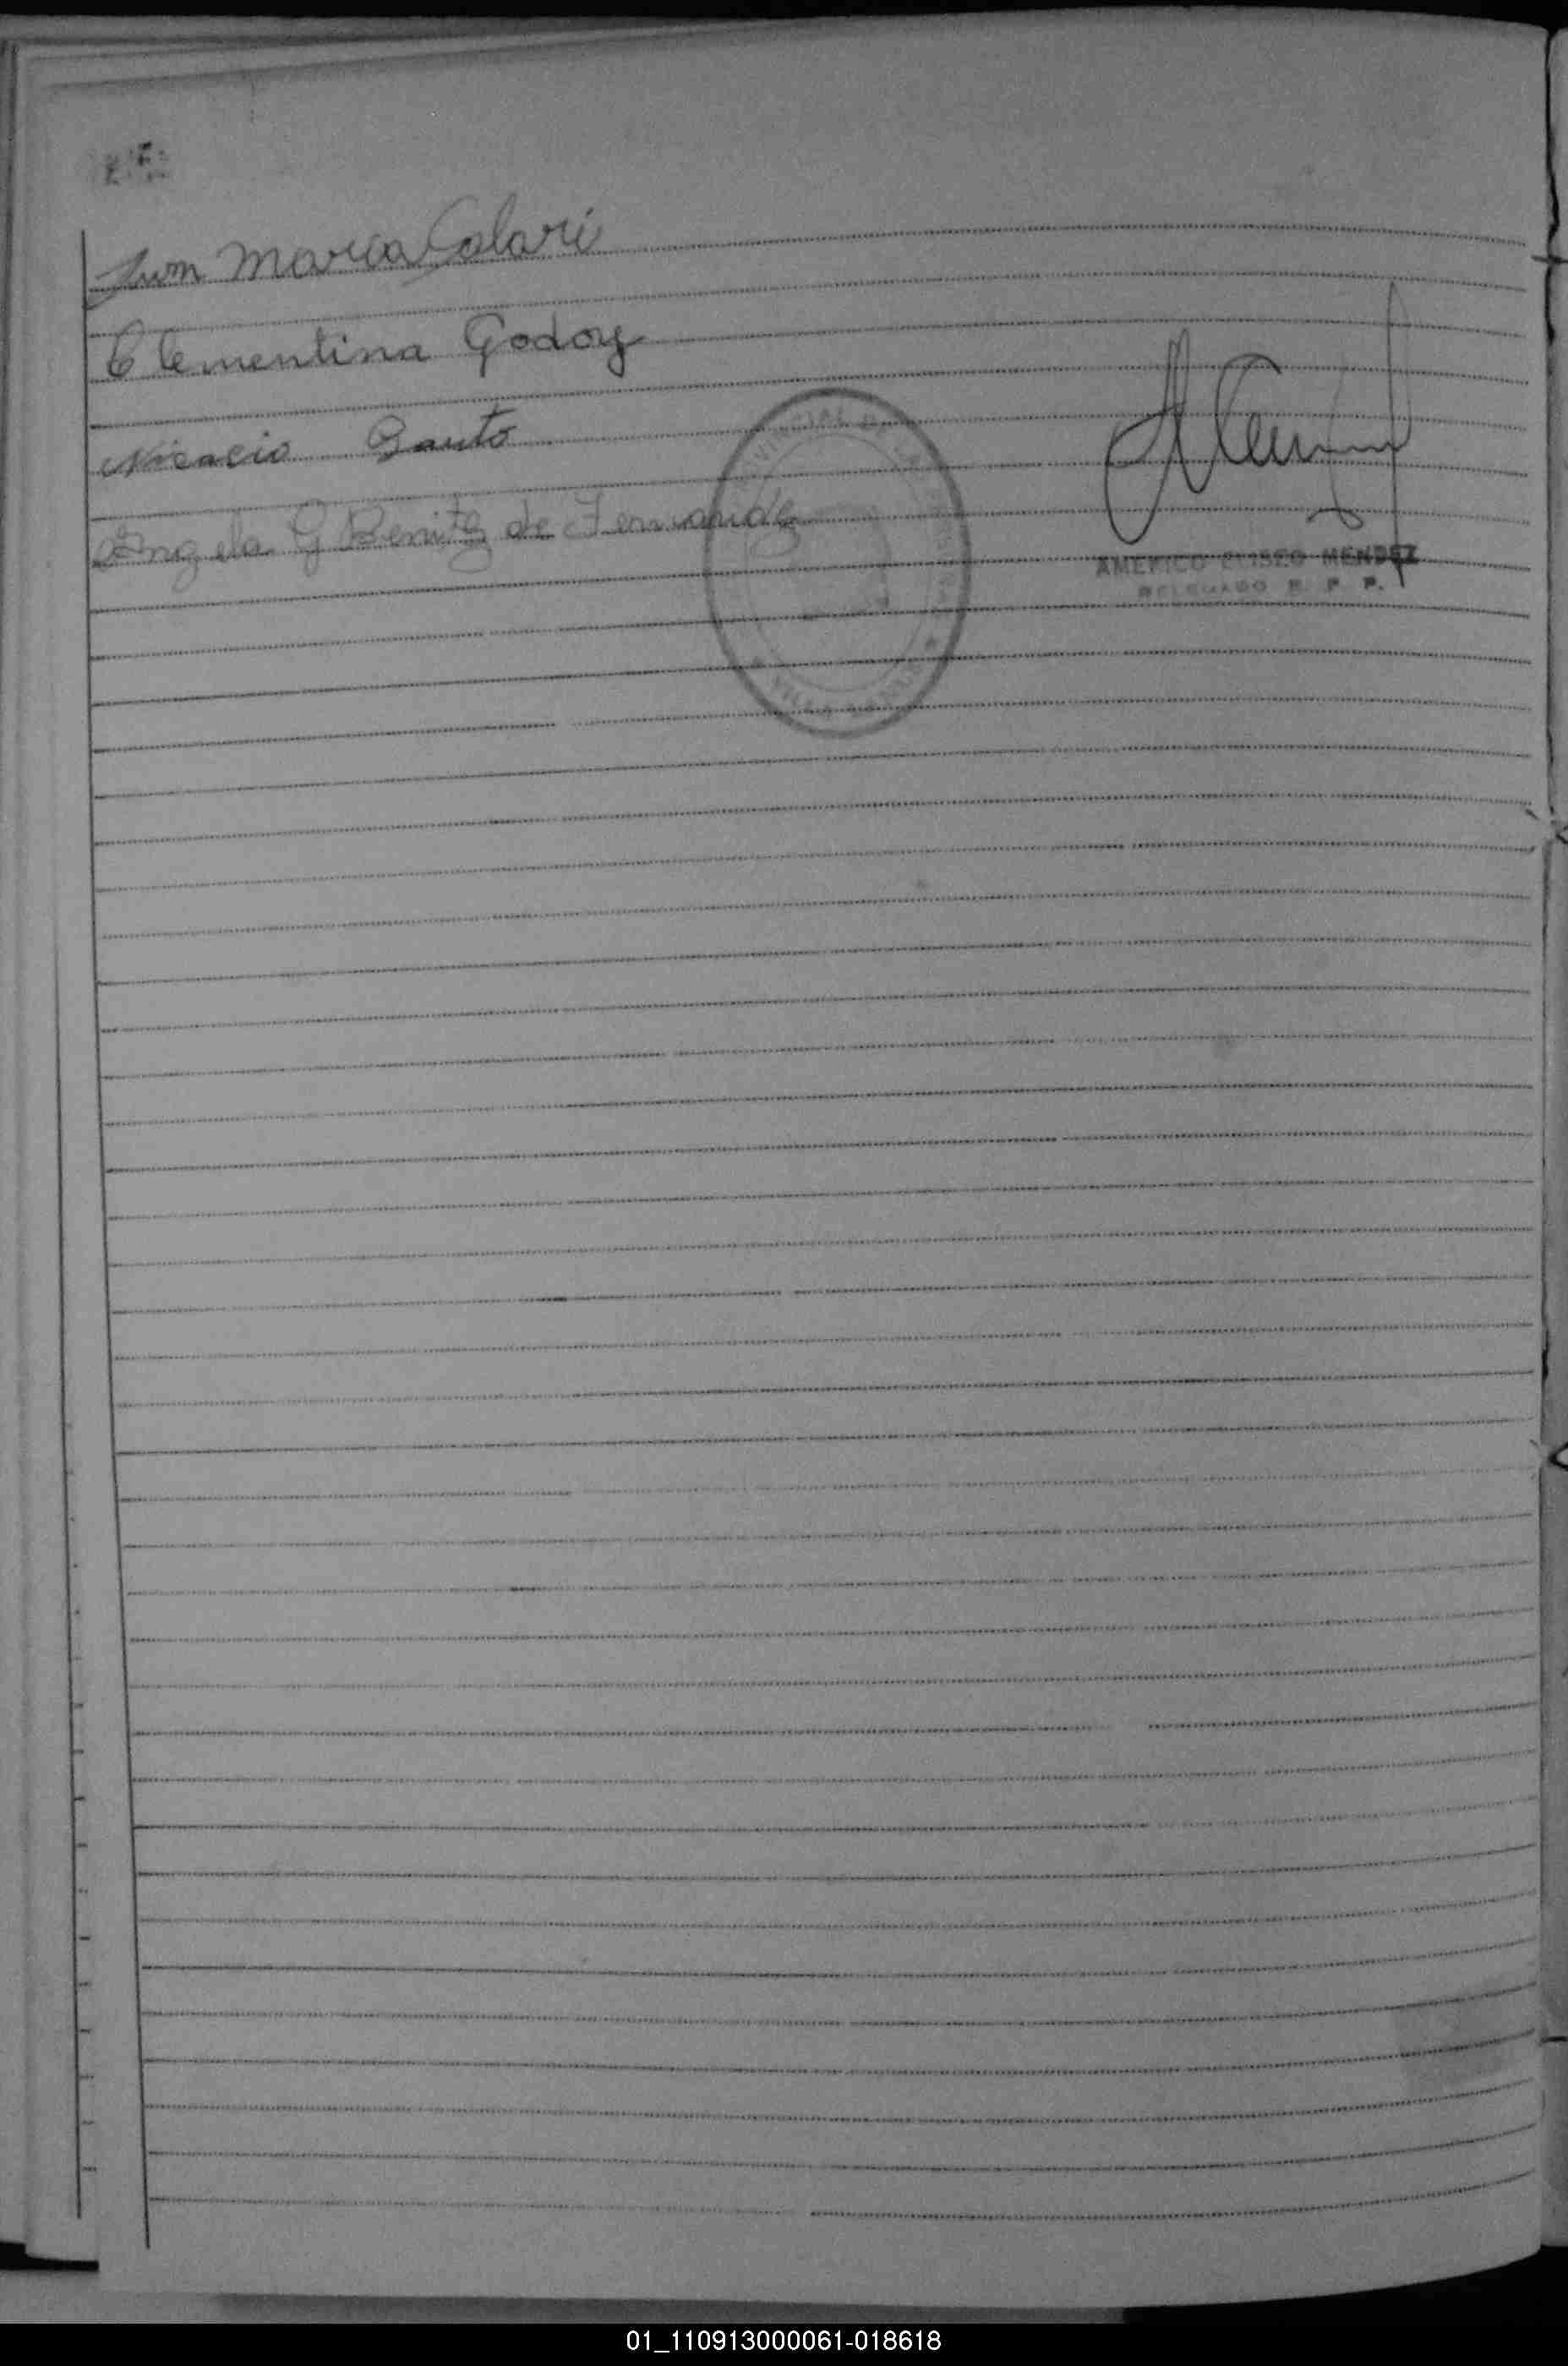 Juan Maria Colari
Clementina Godoy
Nicacio Bauto
Angela G Benitz de Fernandez
AMERICO ELISEO MENDEZ
DELEGADO R. P. P.
01_110913000061-018618